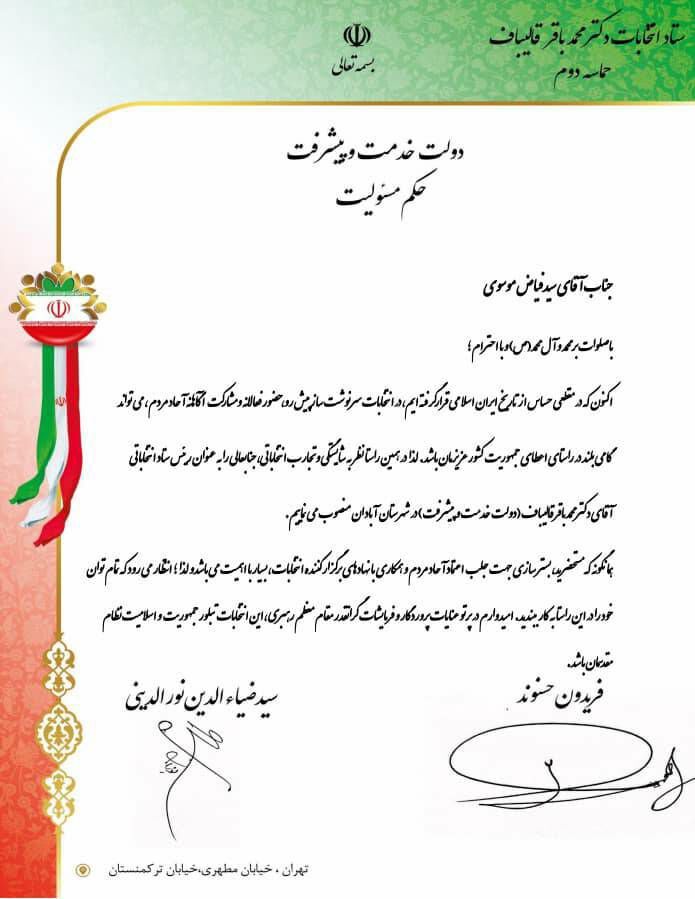 ستاد انتخابات دکتر محمد باقر قالیباف
حماسه دوم
بسمه تعالی
دولت خدمت و پیشرفت
حکم مسئولیت
جناب آقای سید فیاض موسوی
با صلوات بر محمد و آل محمد(ص) و با احترام ؛
اکنون که در مقطعی حساس از تاریخ ایران اسلامی قرار گرفته ایم، در انتخابات سرنوشت ساز پیش رو، حضور فعالانه و مشارکت آگاهانه آحاد مردم ، می تواند
گامی بلند در راستای اعطای جمهوریت کشور عزیزمان باشد. لذا در همین راستا نظر به شایستگی و تجارب انتخاباتی، جنابعالی را به عنوان رئیس ستاد انتخاباتی
آقای دکتر محمد باقر قالیباف (دولت خدمت و پیشرفت) در شهرستان آبادان منصوب می نماییم.
همانگونه که مستحضرید، بسترسازی جهت جلب اعتماد آحاد مردم و همکاری با نهادهای برگزار کننده انتخابات، بسیار با اهمیت می باشد و لذا ؛ انتظار می رود که تمام توان
خود را در این راستا به کار ببندید. امیدوارم در پرتو عنایات پروردگار و فرمایشات گرانقدر مقام معظم رهبری، این انتخابات تبلور جمهوریت و اسلامیت نظام
مقدسمان باشد.
فریدون حسنوند
سید ضیاء الدین نور الدینی
تهران ، خیابان مطهری،خیابان ترکمنستان